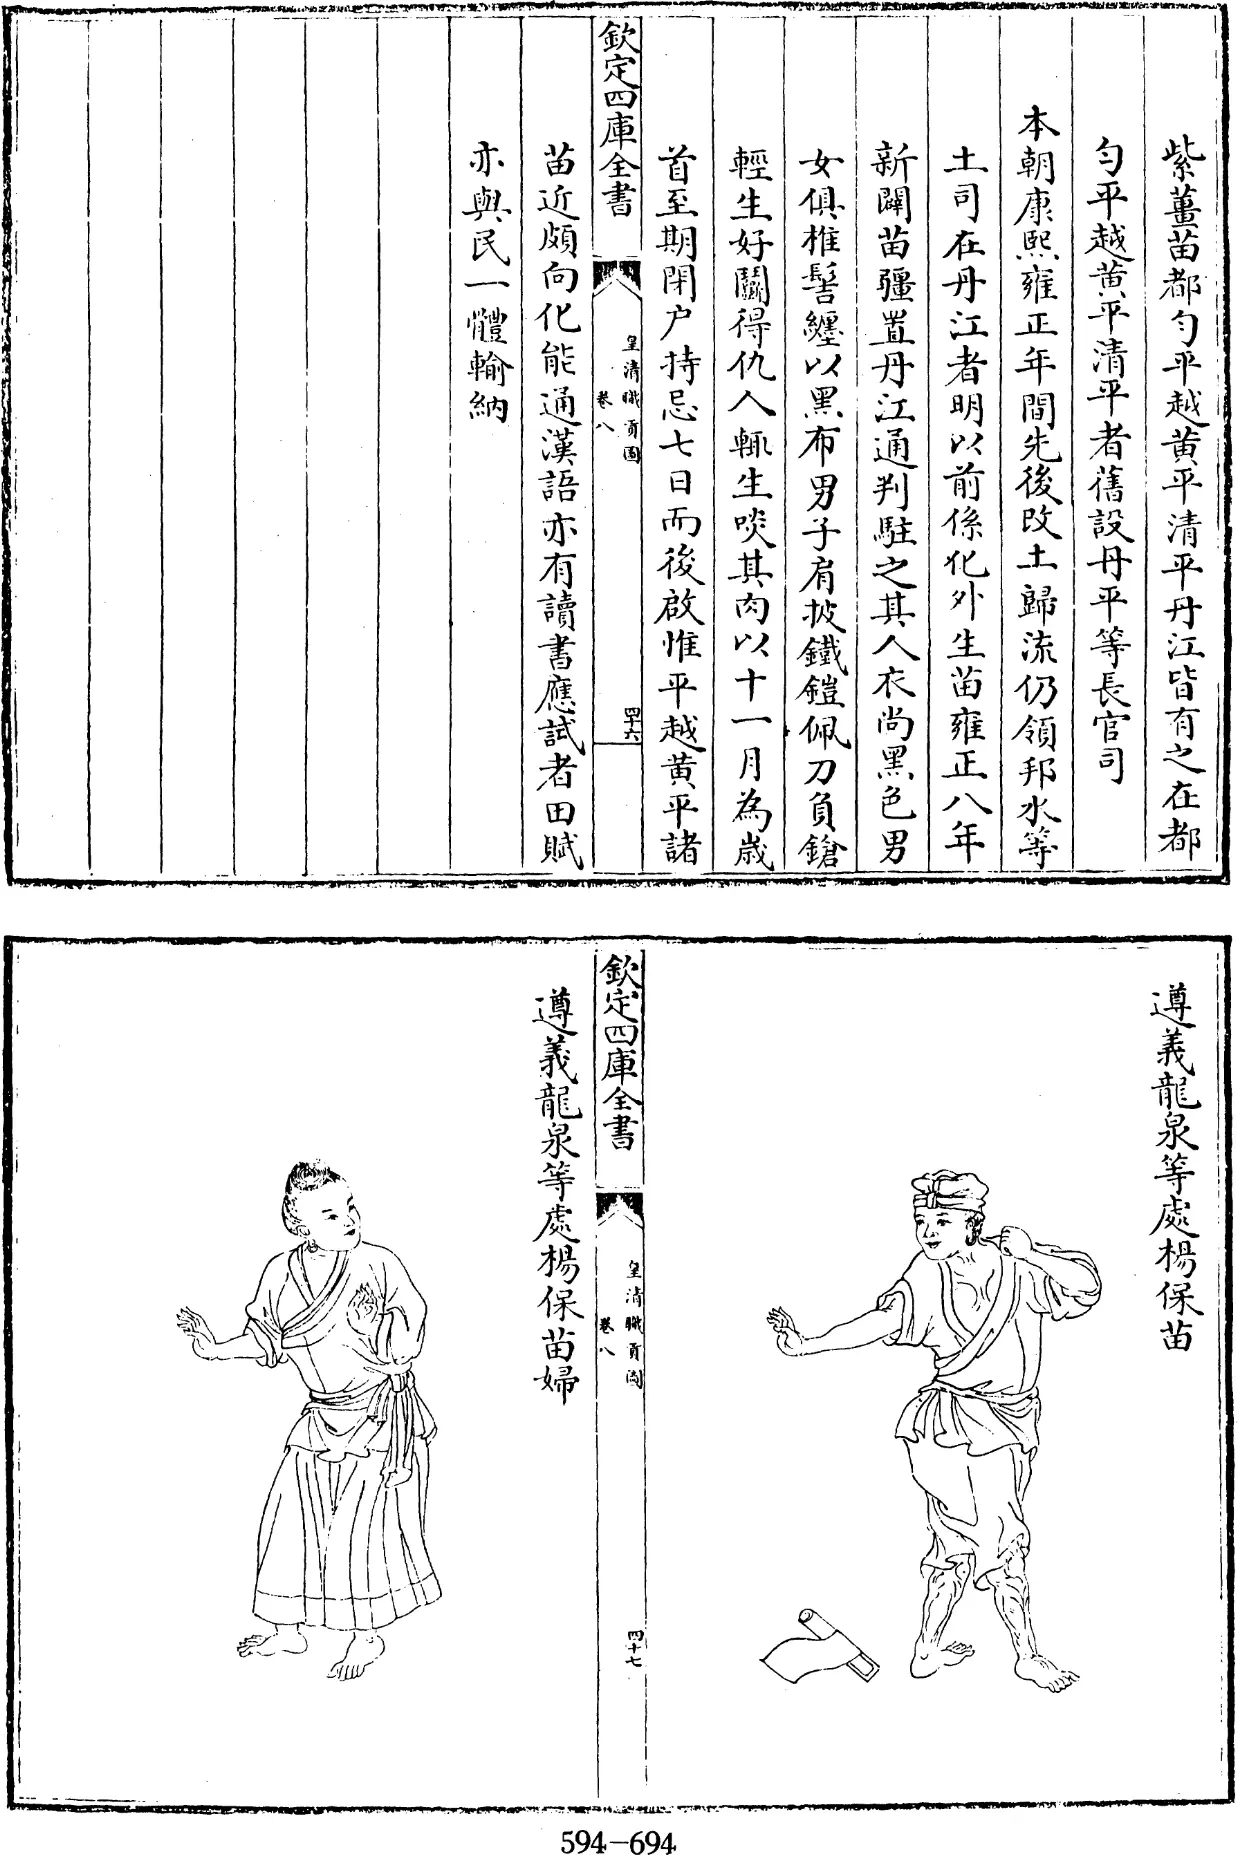 紫薑苗都勻平越黄平清平丹江皆有之在都
勻平越黄平清平者舊設丹平等長官司
本朝康熙雍正年間先後改土歸流仍領邦水等
土司在丹江者明以前係化外生苗雍正八年
新闢苗疆置丹江通判駐之其人衣尚黑色男
女俱椎髻纏以黑布男子肩披鐵鎧佩刀負鎗
輕生好鬭得仇人輒生啖其肉以十一月為歳
首至期閉户持忌七日而後啟惟平越黄平諸
欽定四庫全書
皇清職貢圖
卷八
四十六
苗近頗向化能通漢語亦有讀書應試者田賦
亦與民一體輸納
遵義龍泉等處楊保苗
欽定四庫全書
皇清職貢圖
卷八
四十七
遵義龍泉等處楊保苗婦
594-694